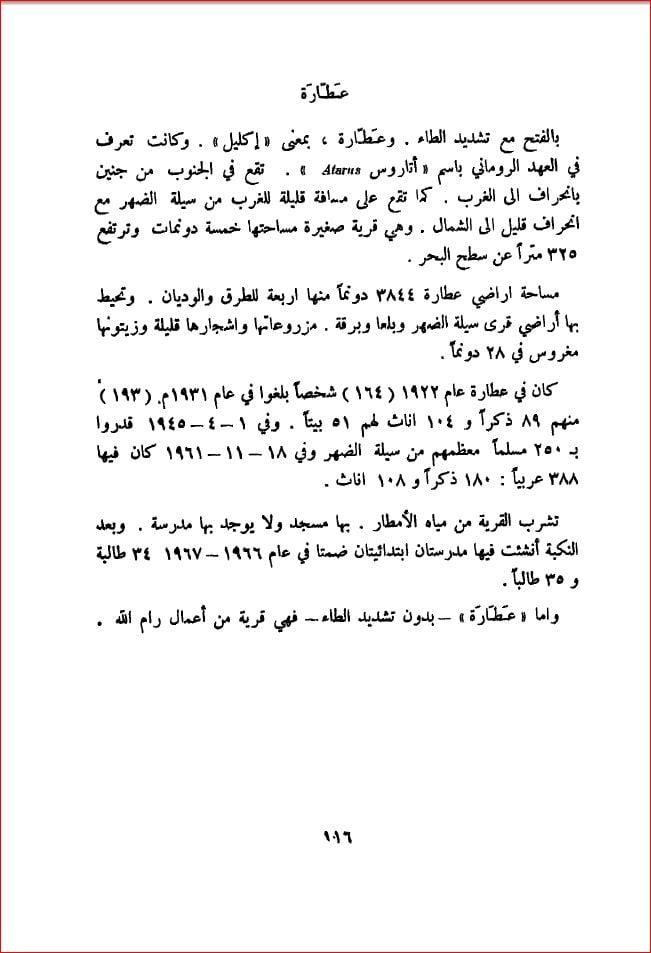 عَطّارَة
بالفتح مع تشديد الطاء . وعَطّارة ، بمعنى «إكليل» . وكانت تعرف
في العهد الروماني باسم «أتاروس Atarus» . تقع في الجنوب من جنين
بانحراف الى الغرب . كما تقع على مسافة قليلة للغرب من سيلة الضهر مع
انحراف قليل الى الشمال . وهي قرية صغيرة مساحتها خمسة دونمات وترتفع
٣٢٥ متراً عن سطح البحر .
مساحة اراضي عطارة ٣٨٤٤ دونماً منها اربعة للطرق والوديان . وتحيط
بها أراضي قرى سيلة الضهر وبلعا وبرقة . مزروعاتها واشجارها قليلة وزيتونها
مغروس في ٢٨ دونماً .
كان في عطارة عام ١٩٢٢ (١٦٤) شخصاً بلغوا في عام ١٩٣١م. (١٩٣)
منهم ٨٩ ذكراً و ١٠٤ اناث لهم ٥١ بيتاً . وفي ١ – ٤ – ١٩٤٥ قدروا
بـ ٢٥٠ مسلماً معظمهم من سيلة الضهر وفي ١٨ – ١١ – ١٩٦١ كان فيها
٣٨٨ عربياً : ١٨٠ ذكراً و ١٠٨ اناث .
تشرب القرية من مياه الأمطار . بها مسجد ولا يوجد بها مدرسة . وبعد
النكبة أنشئت فيها مدرستان ابتدائيتان ضمتا في عام ١٩٦٦ – ١٩٦٧ ٣٤ طالبة
و ٣٥ طالباً .
واما «عَطَارَة» – بدون تشديد الطاء – فهي قرية من أعمال رام الله .
١٠١٦